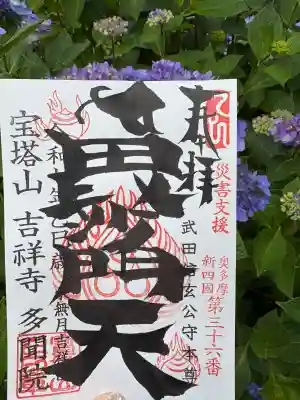 奉拝
災害支援
奥多摩
新四國
第三十六番
武田信玄公守本尊
毘沙門天
令和七年乙巳歳水無月吉祥
宝塔山 吉祥寺 多聞院